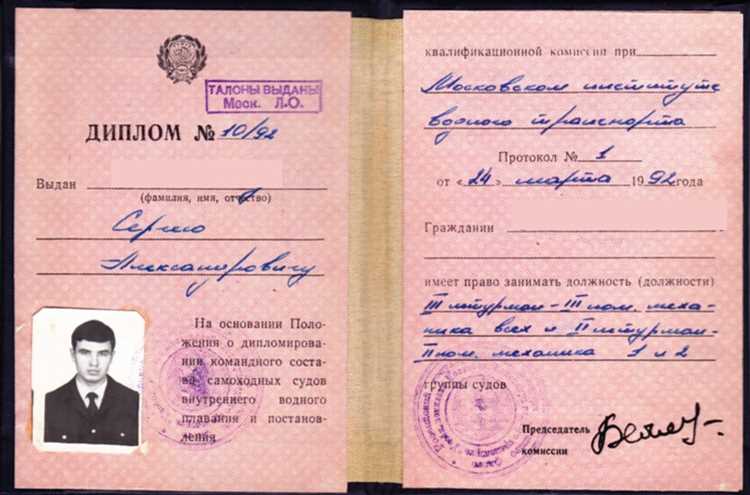 ТАЛОНЫ ВЫДАНЫ
Моск. Л.О.
ДИПЛОМ № 10/92
Выдан
(фамилия, имя, отчество)
Сергею
Александровичу
На основании Поло-
жения о дипломирова-
нии командного соста-
ва самоходных судов
внутреннего водного
плавания и постанов-
ления
квалификационной комиссии при
Московском институте
водного транспорта
Протокол № 1
от «24» марта 1992 года
Гражданин
имеет право занимать должность (должности)
III штурман-III пом. меха-
ника всех и II штурман-
II пом. механика 1 и 2
группы судов
Председатель
комиссии